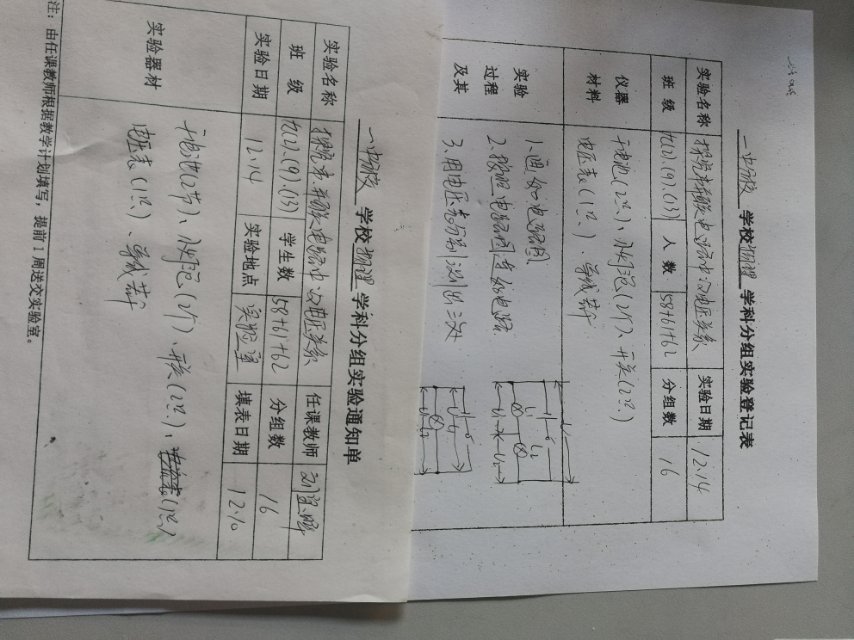 学校物理学科分组实验通知单
实验名称 探究串并联电路中的电压关系 任课教师
班级 九(2).(9).(13) 学生数 58+61+62 分组数 16
实验日期 12.14 实验地点 实验室 填表日期 12.10
实验器材 干电池(2节)、小灯泡(2个)、开关(2只)、
电压表(1只)、导线若干
注：由任课教师根据教学计划填写，提前1周送交实验室。
学校物理学科分组实验登记表
实验名称 探究串并联电路中的电压关系 实验日期 12.14
班级 九(2).(9).(13) 人数 58+61+62 分组数 16
仪器材料 干电池(2只)、小灯泡(2个)、开关(2只)
电压表(1只)、导线若干
实验
过程
及其
1.画好电路图
2.按照电路图连好电路
3.用电压表分别测出三处
L1
L2